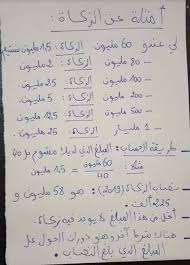 أمثلة عن الزكاة :
لي عندو 60 مليون الزكاة: 1,5 مليون سنتيم
— 80 مليون الزكاة: 2 مليون
— 100 مليون الزكاة: 2,5 مليون
— 200 مليون الزكاة: 5 مليون
— 500 مليون الزكاة: 12,5 مليون
— 1 مليار الزكاة: 25 مليون
طريقة الحساب: المبلغ الذي لديك مقسوم على 40
مثلا: 60 مليون / 40 = 1,5 مليون
نصاب الزكاة (2019): هو 58 مليون و
225 ألف.
أقل من هذا المبلغ لا يوجد فيه زكاة.
هناك شرط آخر وهو دوران الحول على
المبلغ الذي بلغ النصاب.